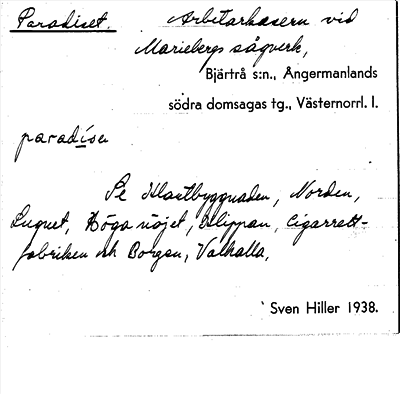 Paradiset. Arbetarkasern vid
Mariebergs sågverk,
Bjärtrå s:n., Ångermanlands
södra domsagas tg., Västernorrl. l.
paradi̲sɛ
Se Klaffbyggnaden, Norden,
Lugnet, Höga nöjet, Klippan, Cigarrett-
fabriken och Borgen, Valhalla.
Sven Hiller 1938.